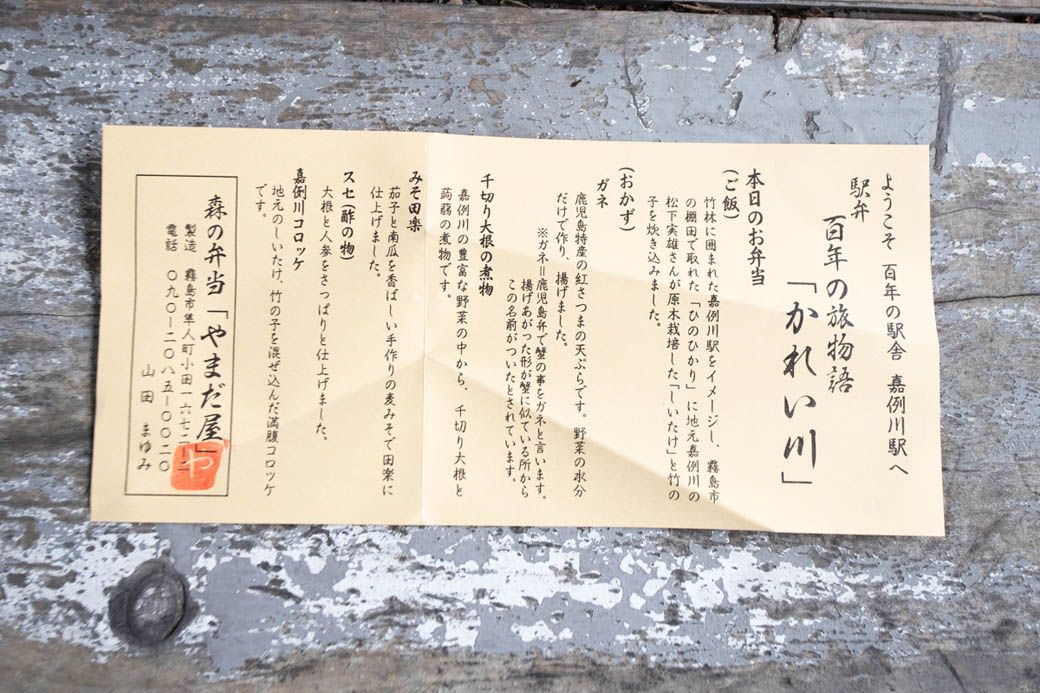 ようこそ 百年の駅舎 嘉例川駅へ
駅弁
百年の旅物語
「かれい川」
本日のお弁当
(ご飯)
竹林に囲まれた嘉例川駅をイメージし、霧島市
の棚田で取れた「ひのひかり」に地元嘉例川の
松下実雄さんが原木栽培した「しいたけ」と竹の
子を炊き込みました。
(おかず)
ガネ
鹿児島特産の紅さつまの天ぷらです。野菜の水分
だけで作り、揚げました。
※ガネ=鹿児島弁で蟹の事をガネと言います。
揚げあがった形が蟹に似ている所から
この名前がついたとされています。
千切り大根の煮物
嘉例川の豊富な野菜の中から、千切り大根と
蒟蒻の煮物です。
みそ田楽
茄子と南瓜を香ばしい手作りの麦みそで田楽に
仕上げました。
スセ(酢の物)
大根と人参をさっぱりと仕上げました。
嘉例川コロッケ
地元のしいたけ、竹の子を混ぜ込んだ満腹コロッケ
です。
森の弁当「やまだ屋」
製造 霧島市隼人町小田一六七二ー二
電話 〇九〇ー二〇八五ー〇〇二〇
山田 まゆみ
や